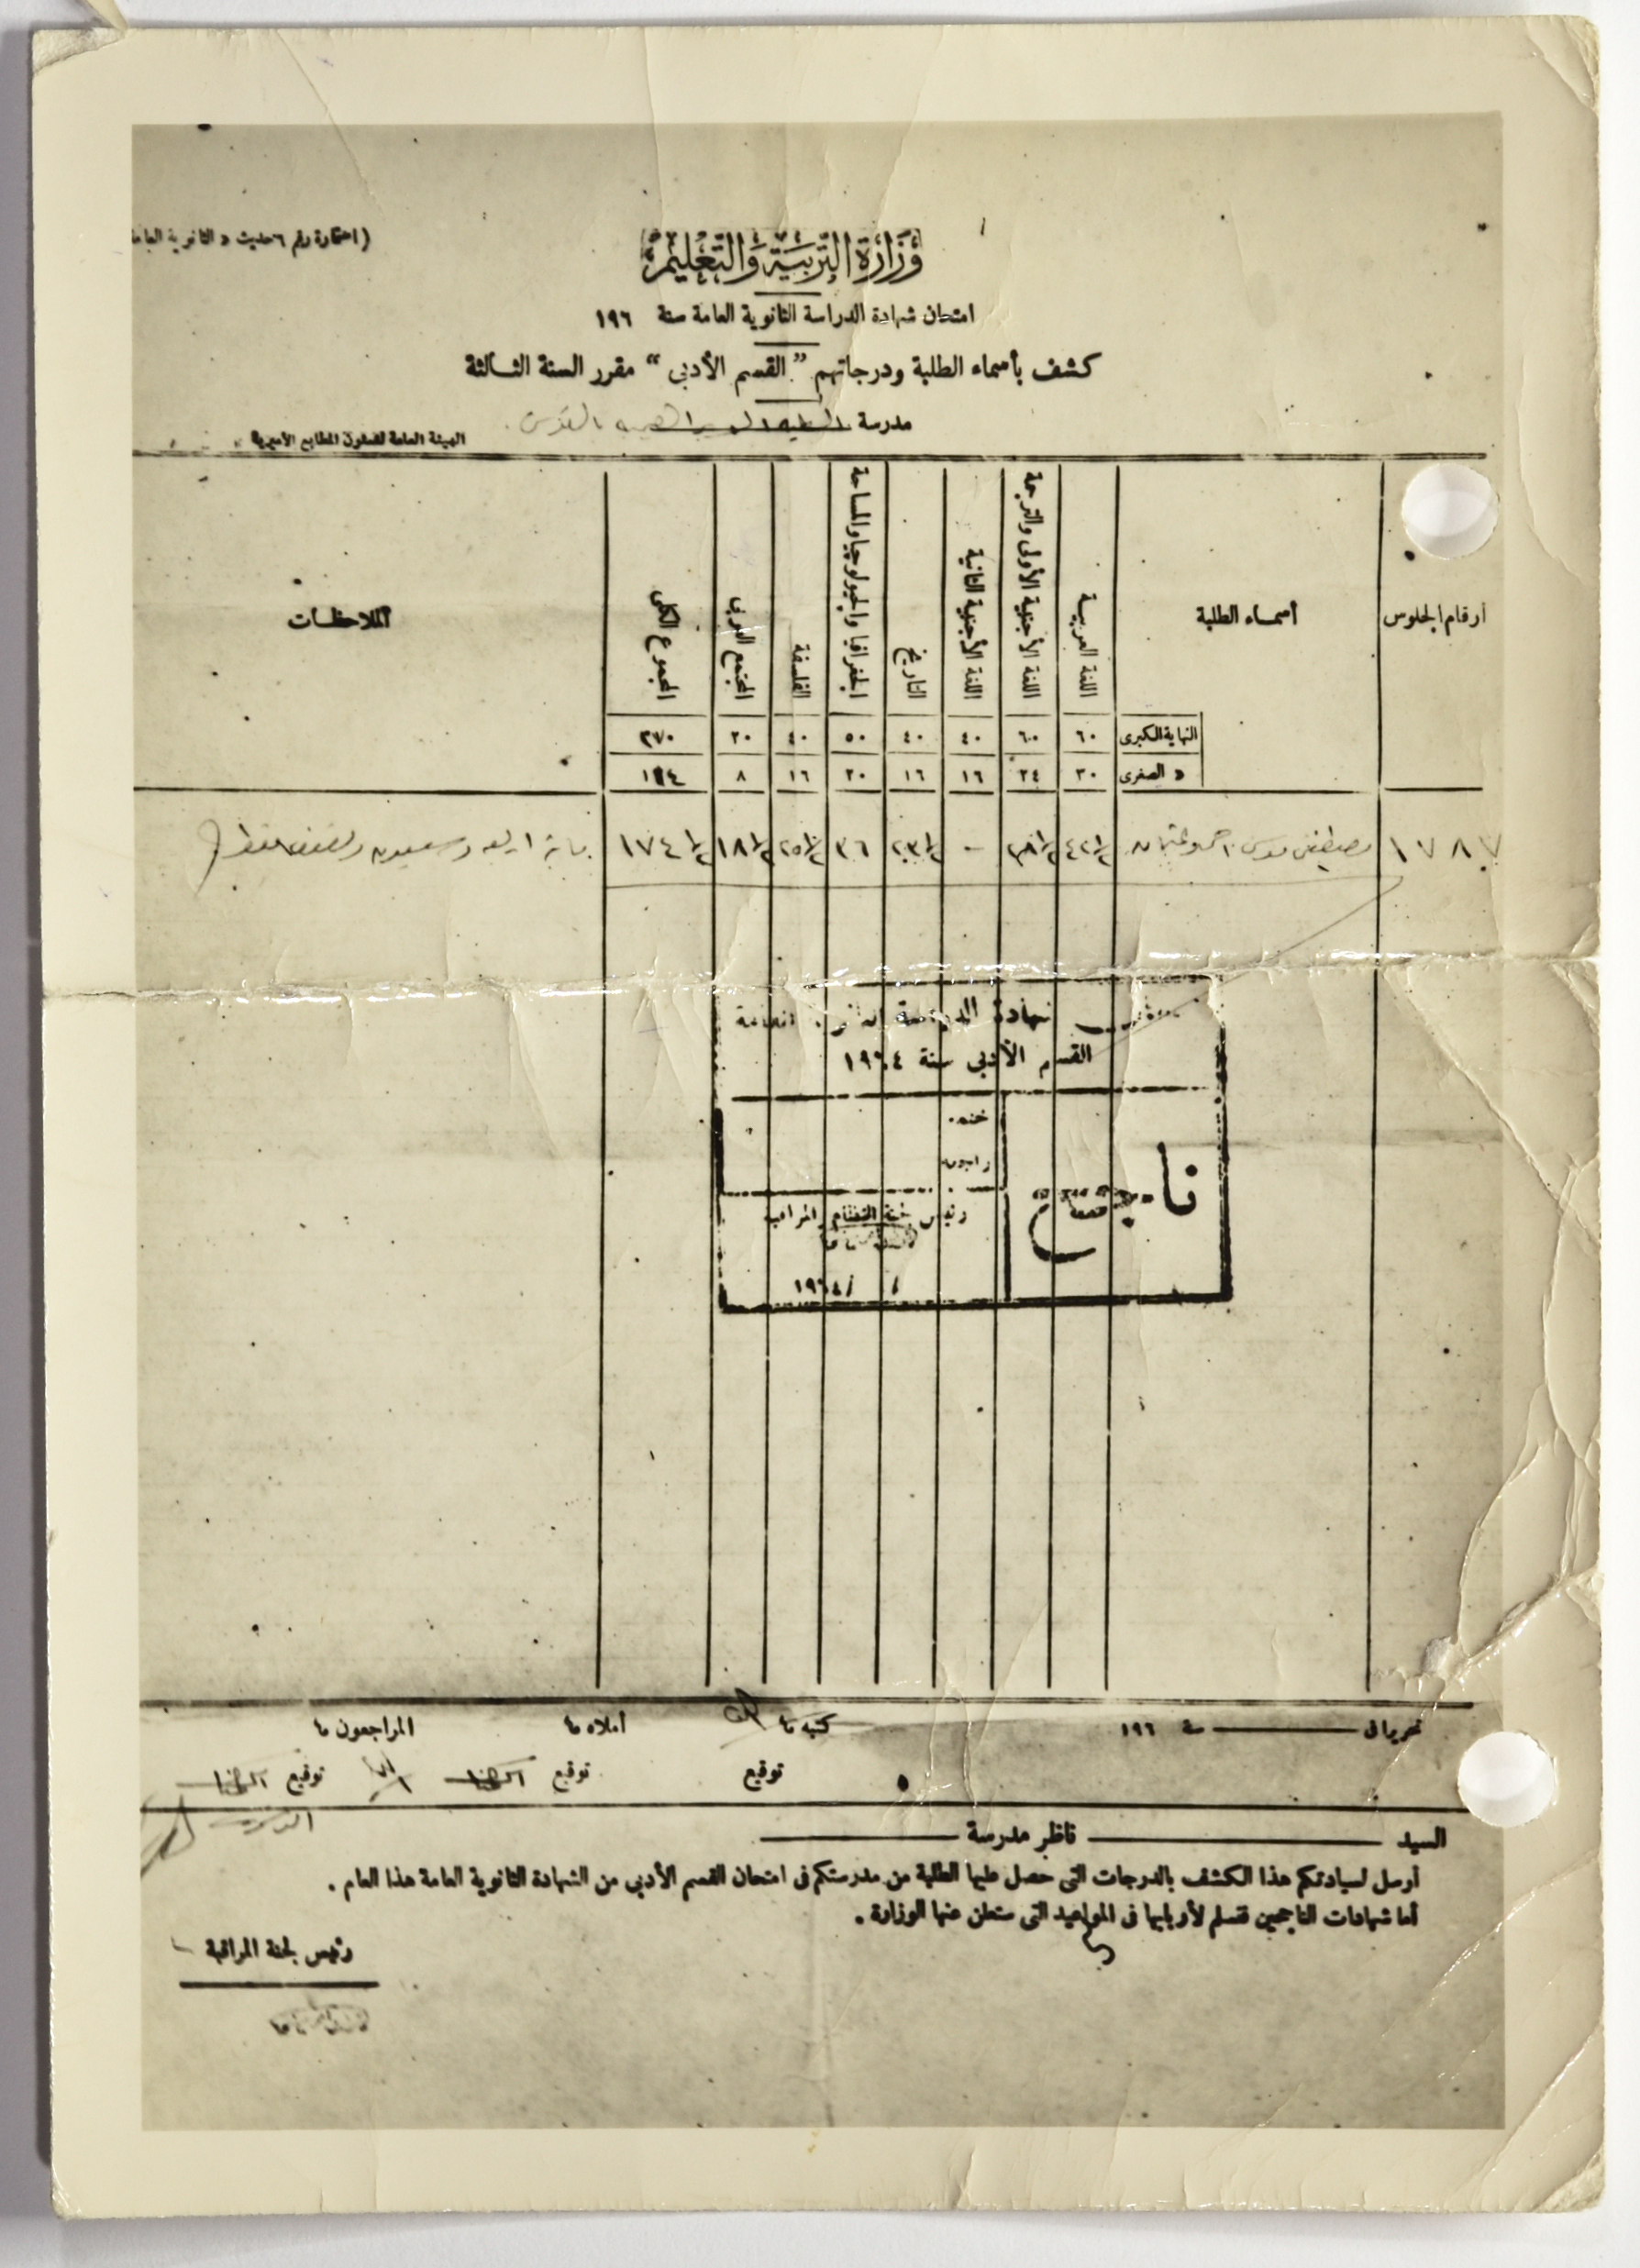 (استمارة رقم ٦ حديث « الثانوية العامة
وَزَارَةُ التَّرْبِيَةِ وَالتَّعْلِيمِ
امتحان شهادة الدراسة الثانوية العامة سنة ١٩٦
كشف بأسماء الطلبة ودرجاتهم " القسم الأدبى " مقرر السنة الثالثة
مدرسة بالقدس
الهيئة العامة لشئون المطابع الأميرية
أرقام الجلوس
أسماء الطلبة
اللغة العربية
اللغة الأجنبية الأولى والترجمة
اللغة الأجنبية الثانية
التاريخ
الجغرافيا والجيولوچيا والمساحة
الفلسفة
المجتمع العربى
المجموع الكلى
الملاحظات
النهاية الكبرى ٦٠ ٦٠ ٤٠ ٤٠ ٥٠ ٤٠ ٢٠ ٢٧٠
« الصغرى ٣٠ ٢٤ ١٦ ١٦ ٢٠ ١٦ ٨
١٧٨٧ مصطفى موسى ٤٢½ ٢٨½ - ٢٣½ ٣٦ ٢٥½ ١٨½ ١٧٤½ مائة اربعة وسبعون ونصف فقط
شهادة الدراسة الثانوية العامة
القسم الأدبى سنة ١٩٦٤
ناجح
ختمه
راجعه
رئيس لجنة النظام والمراقبة
/ /١٩٦٤
تحريرا فى سنة ١٩٦
كتبه ما
أملاه ما
المراجعون ما
توقيع
توقيع
توقيع
السيد ناظر مدرسة
أرسل لسيادتكم هذا الكشف بالدرجات التى حصل عليها الطلبة من مدرستكم فى امتحان القسم الأدبى من الشهادة الثانوية العامة هذا العام .
أما شهادات الناجحين فتسلم لأربابها فى المواعيد التى ستعلن عنها الوزارة .
رئيس لجنة المراقبة